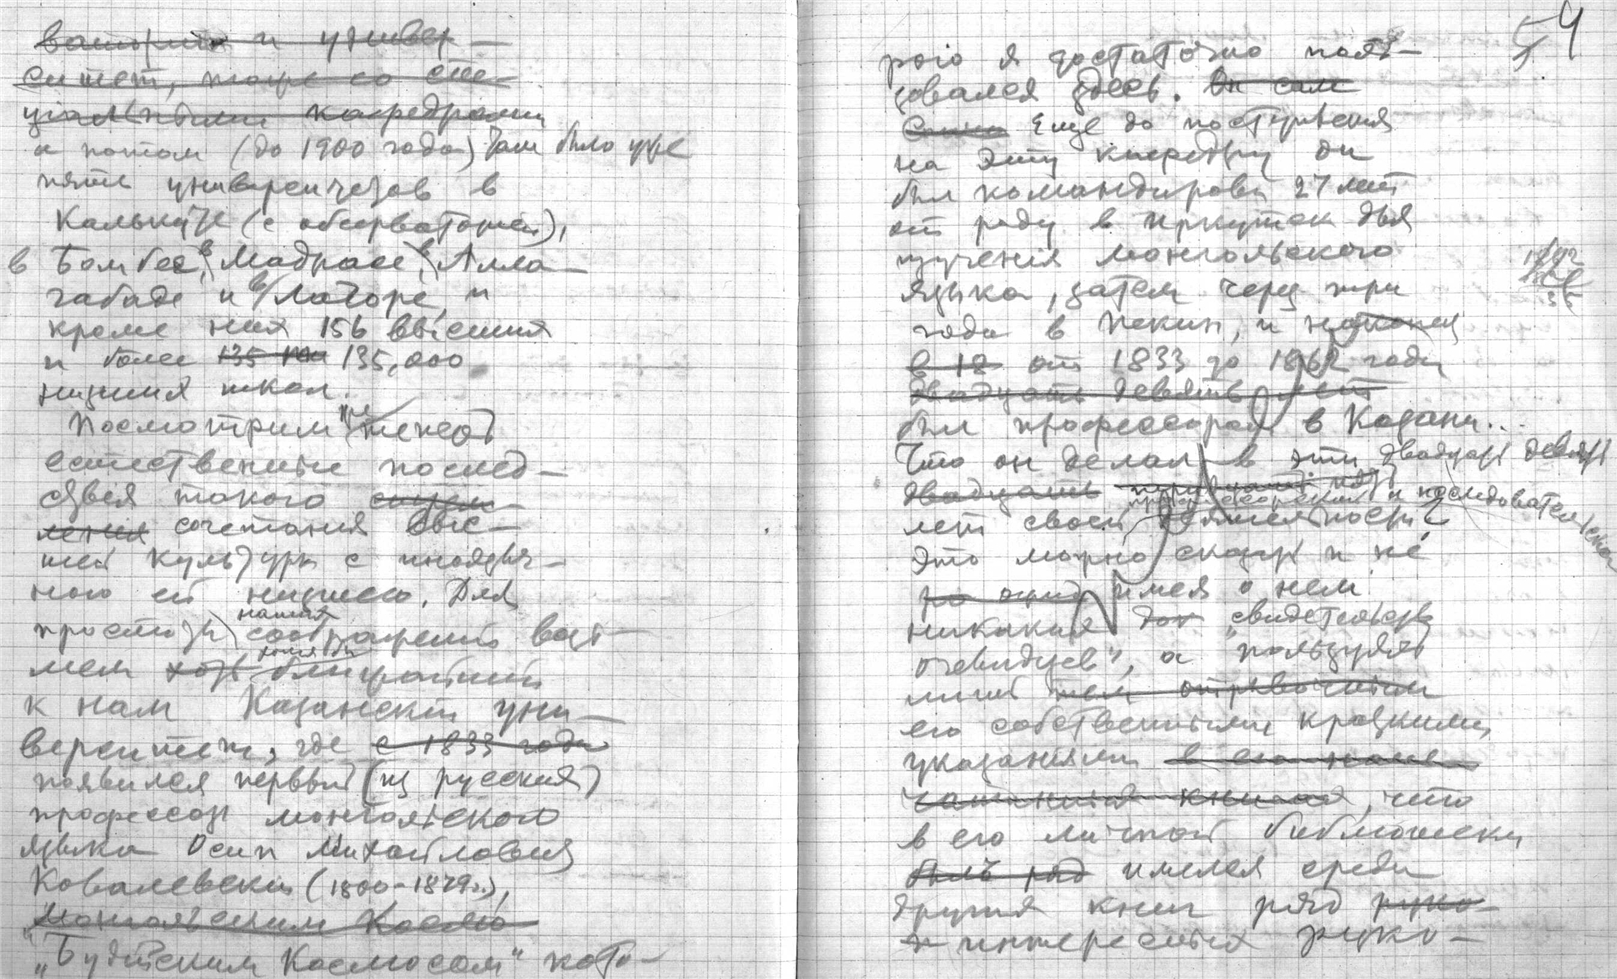 ваторія и универ-
ситет, тоже со спе-
ціальными кафедрами
а потом (до 1900 года) там было уже
пять университетов в
Калькуте (с обсерваторией),
в Бомбее, в Мадрасе, в Алла-
габаде и в Лагоре, и
кроме них 156 высших
и более 135 135,000
низших школ.
Посмотрим же теперь
естественные послед-
ствия такого
сочетания выс-
шей культуры с
него ей низшею. Для
простоты наших соображений возь-
мем хотя бы ближайший
к нам Казанский уни-
верситет, где с 1833 года
появился первый (из русских)
профессор монгольского
языка Осип Михайлович
Ковалевский (1800-1879г.),
Монгольским Космо
"Буддийским Космосом" кото-
54
рого я достаточно поль-
зовался здесь. Он сам
Еще до поступления
на эту кафедру он
был командирован 27 лет
от роду в Иркутск для
изученія монгольского
языка, затем через три
года в Пекин, и наконец
в 18 от 1833 до 1862 года
двадцать девять лет
был профессором в Казани..
Что он делал в эти двадцать девять
двадцать
профессорской и исследовательской
лет своей деятельности?
Это можно сказать и не
имея о нем
никаких свидетельств
очевидцев", а пользуясь
лишь тем отрывочным
его собственными краткими
указаниями
книгах, что
в его личной библиотеки
был ряд имелся среди
других книг ряд руко-
и интересных руко-